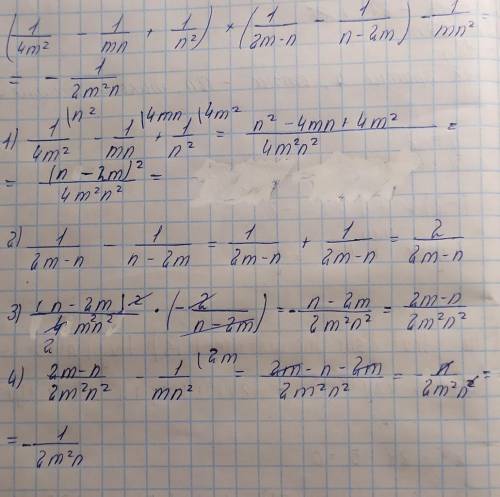 (1/4m² - 1/mn + 1/n²) × (1/2m-n - 1/n-2m) - 1/mn² =
= - 1/2m²n
1) 1/4m² |n² - 1/mn |4mn + 1/n² |4m² = n² - 4mn + 4m² / 4m²n² =
= (n - 2m)² / 4m²n² =
2) 1/2m-n - 1/n-2m = 1/2m-n + 1/2m-n = 2/2m-n
3) (n - 2m)² / 4 2 mn² · (- 2/n-2m) = - n-2m/2m²n² = 2m-n/2m²n²
4) 2m-n/2m²n² - 1/mn² |2m = 2m-n-2m/2m²n² = - n/2m²n² =
= - 1/2m²n